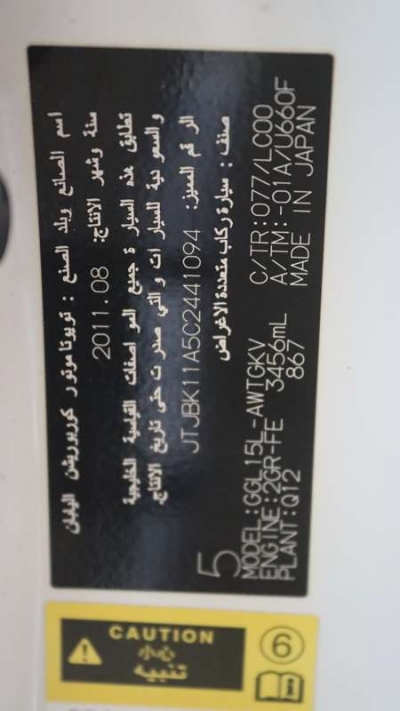 اسم الصانع وبلد الصنع : تويوتا موتور كوربوريشن اليابان
سنة وشهر الانتاج: 2011.08
تطابق هذه السيارة جميع المواصفات القياسية الخليجية
والسعودية للسيارات والتي صدرت حتى تاريخ الانتاج.
الرقم المميز: JTJBK11A5C2441094
صنف : سيارة ركاب متعددة الاغراض
5
MODEL:GGL15L-AWTGKV C/TR:077/LC00
ENGINE:2GR-FE 3456mL A/TM:-01A/U660F
PLANT:Q12 867 MADE IN JAPAN
CAUTION
小心
تنبيه
6